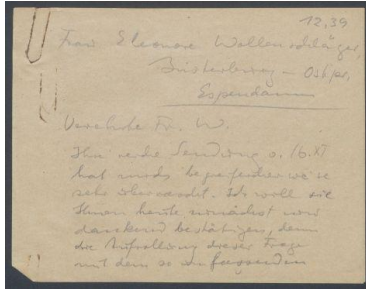 12.39
Frau Eleonore Wollenschläger,
Insterburg – Ostpr.
Verehrte Fr. W.
Ihre werte Sendung v. 16. XI
hat mich begreiflicherweise
sehr überrascht. Ich will sie
Ihnen heute zunächst nur
dankend bestätigen, denn
die Aufrollung dieser Frage
mit dem so umfassenden